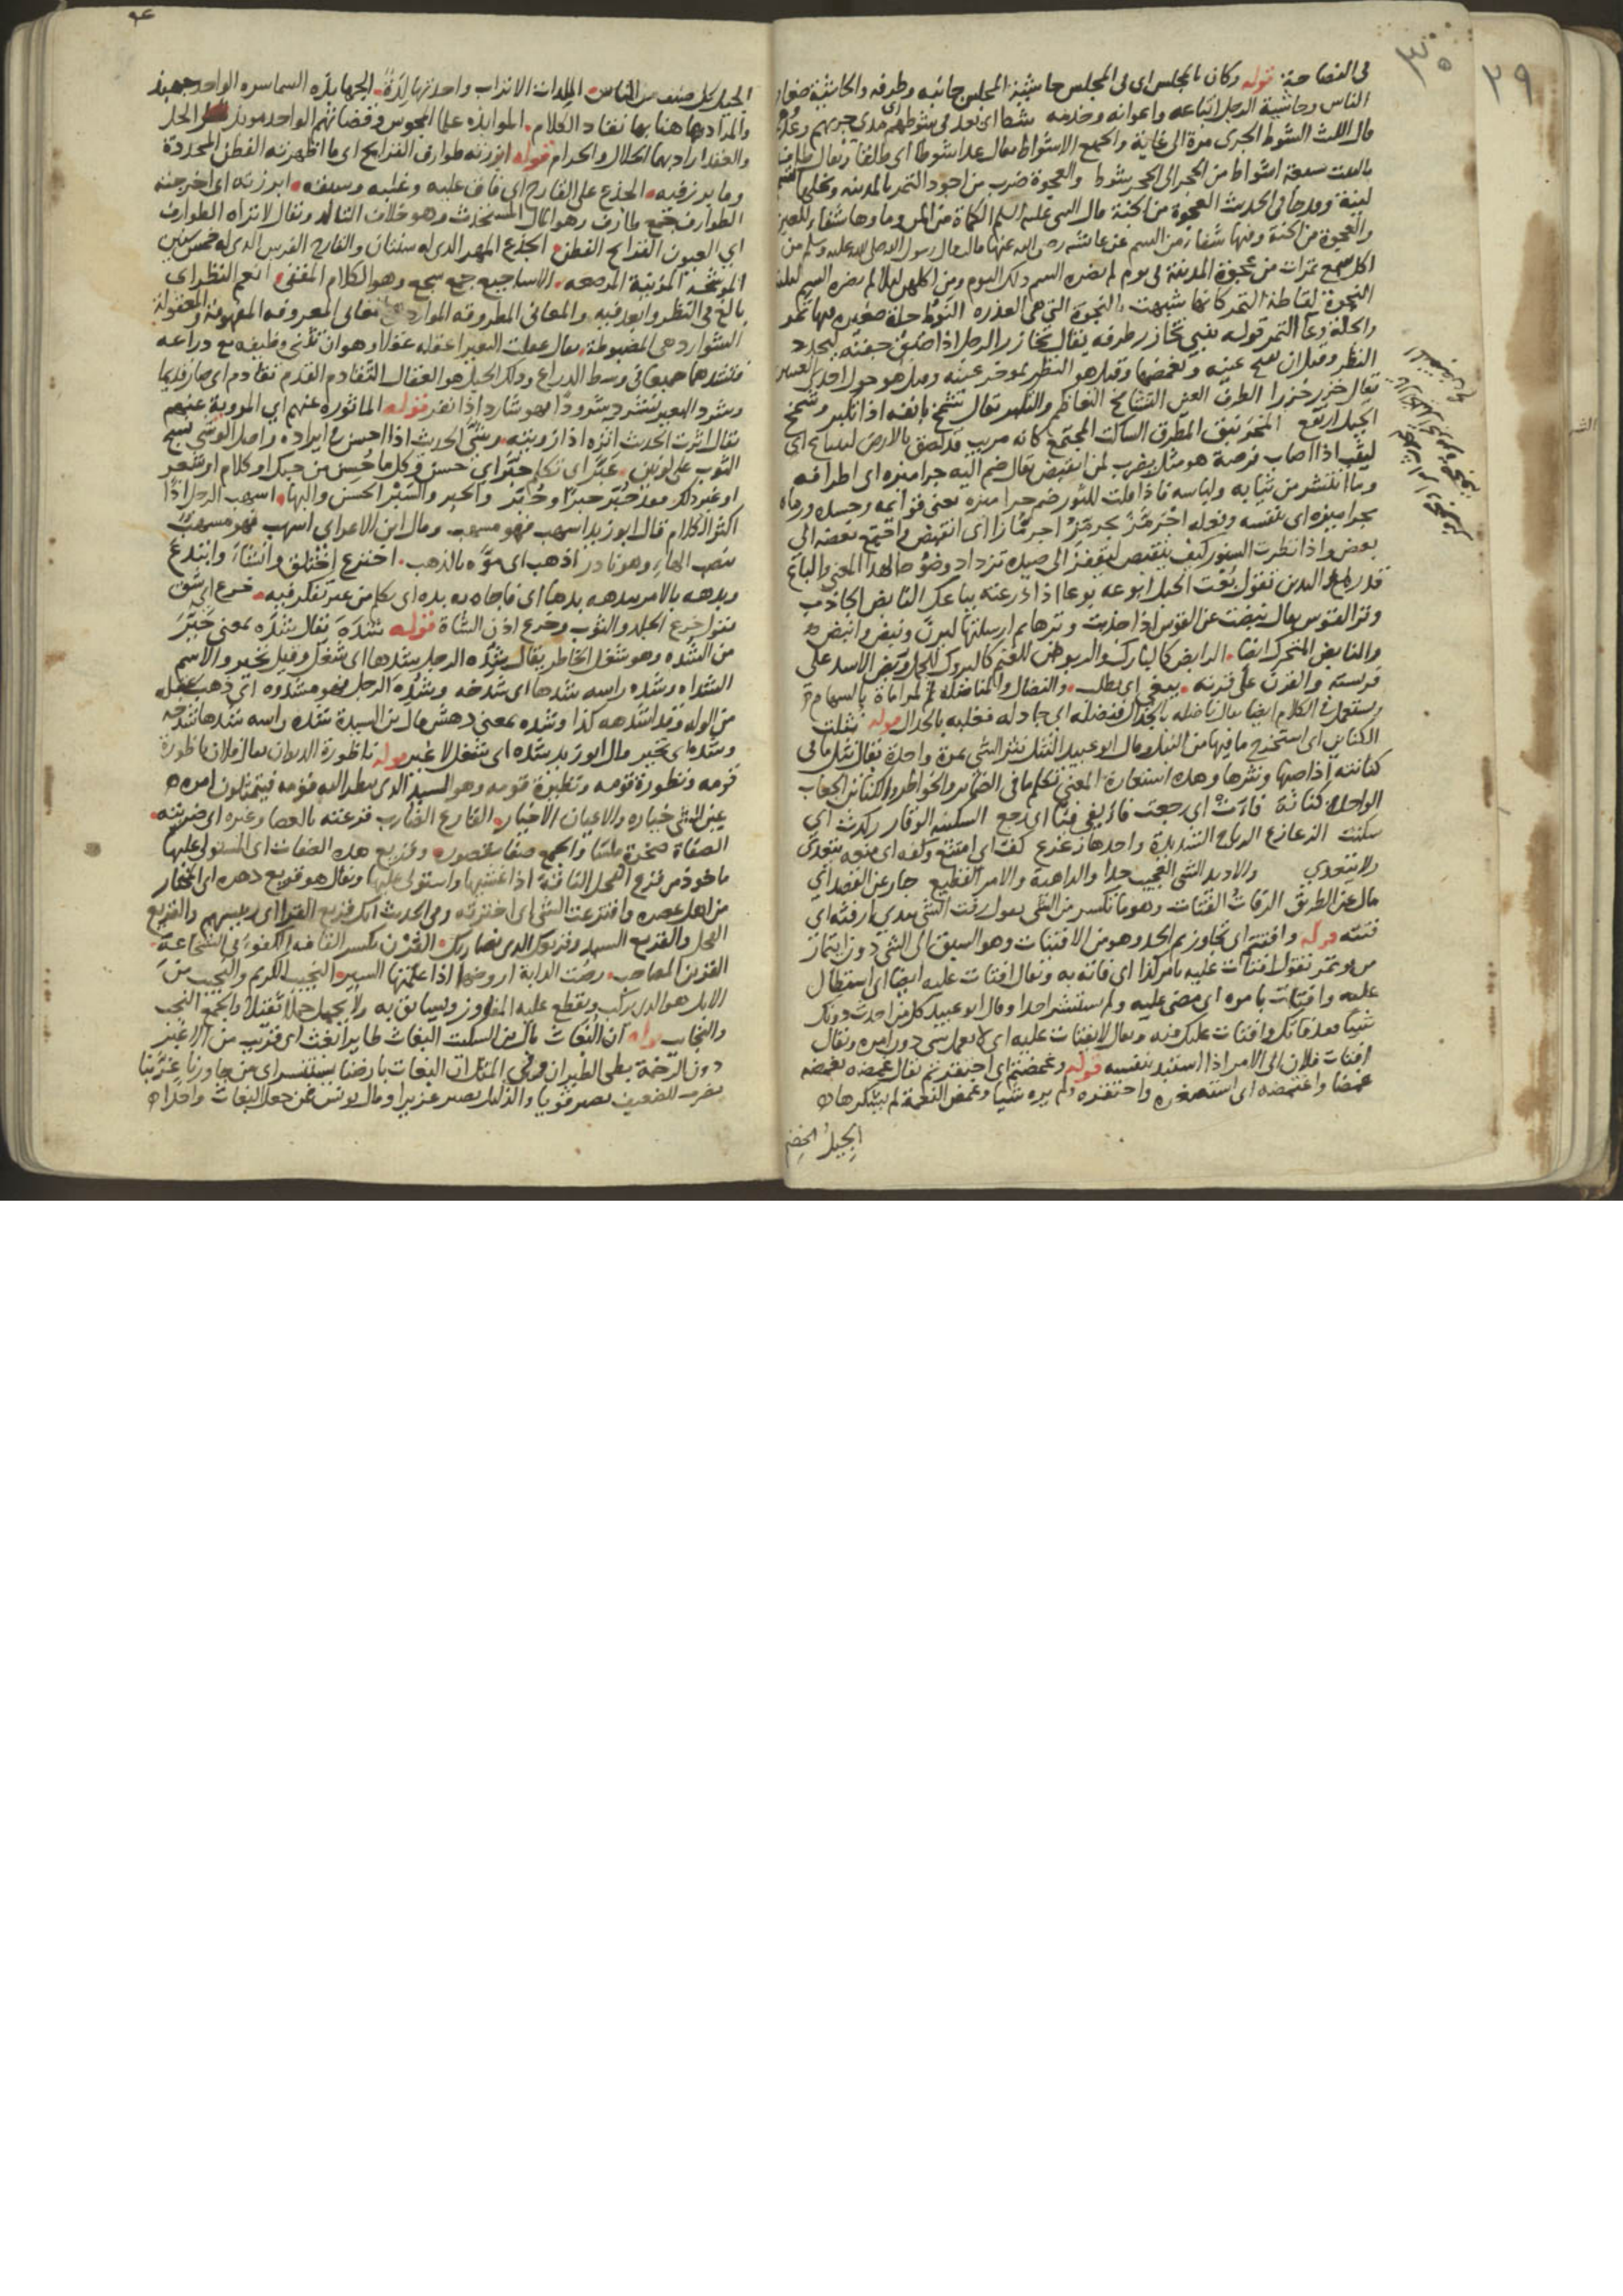 ٢٩
٣٠
في الفصاحة قوله وكان بالمجلس اى في المجلس حاشية المجلس جانبه وطرفه والحاشية صغار
الناس وحاشية الرجل اتباعه واعوانه وخدمه شططا اى بعد في شوطهم اى مدى جريهم وعدوهم
قال الليث الشوط الجرى مرة الى غاية والجمع الاشواط يقال عدا شوطا اى طلقا ويقال طاف
بالبيت سبعة اشواط من الحجر الى الحجر شوط والعجوة ضرب من اجود التمر بالمدينة ونخلها
لينة وورد في الحديث العجوة من الجنة قال النبي عليه السلم الكماة من المن وماوها شفاء للعين
والعجوة من الجنة وفيها شفاء من السم عن عائشه رضى الله عنها قالت قال رسول الله صلى الله عليه وسلم من
اكل سبع تمرات من عجوة المدينة في يوم لم يضره السم ذلك اليوم ومن اكلهن ليلا لم يضره السم
النجوة لقاطة التمر كانها شبهت بالنجوة التي هي العذره النوط جلة صغيرة فيها تمر
والجلة وعاء التمر قوله ينبي تخازر طرفه يقال تخازر الرجل اذا ضيق جفنه ليحدد
النظر وقيل ان يفتح عينه ويغمضها وقيل هو النظر بموخر عينه وقيل هو حول احدى العينين
يقال خزر خزرا الطرف العين التشامخ التعاظم والتكبر يقال شمخ بانفه اذا تكبر وشمخ
الجبل ارتفع المخرنبق المطرق الساكت المجتمع كانه مريب قد لصق بالارض لينباع اى
ليثب اذا اصاب فرصة هو مثل يضرب لمن انقبض يقال ضم اليه جراميزه اى اطرافه
وما انتشر من ثيابه ولباسه فاذا قلت للثور ضم جراميزه يعنى قوائمه وجسده ورماه
بجراميزه اى بنفسه وقوله اجرمز يجرمز اجرمازا اى انقبض واجتمع بعضه الى
بعض واذا نظرت السنور كيف ينقبض ليقفز الى صيده تزداد وضوحا لهذا المعنى والباع
قدر مد اليدين تقول بعت الحبل ابوعه بوعا اذا ذرعته بباعك النابض الجاذب
وتر القوس يقال نبضت عن القوس اذا جذبت وترها ثم ارسلتها ليرن ونبض وانبض
والنابض المتحرك ايضا الرابض كالبارك والربوض للغنم كالبروك للجمل وربض الاسد على
فريسته والقرن على قرنه يبغي اى يطلب والنضال والمناضلة المراماة بالسهام
ويستعمل في الكلام ايضا يقال ناضله بالجدال فنضله اى جادله فغلبه بالجدال قوله نثلت
الكنائن اى استخرج ما فيها من النبل وقال ابو عبيد النثل نثر الشي بمرة واحدة يقال نثل ما في
كنانته اذا صبها ونثرها وهذه استعارة المعنى تكلم ما في الضمائر والخواطر والكنائن الجعاب
الواحدة كنانة فاءت اى رجعت فاء يفي فيئا اى رجع السكينه الوقار ركدت اى
سكنت الزعازع الرياح الشديدة واحدها زعزع كف اى امتنع وكفه اى منعه يتعدى
ولا يتعدى والاد يد الشي العجيب جدا والداهية والامر الفظيع جار عن القصد اى
مال عن الطريق الرفات الفتات وهو ما تكسر من الشى يقول رفت الشي بيدى ارفته اى
فتته قوله وافتتم اى تجاوزتم الحد وهو من الافتيات وهو السبق الى الشي دون ائتمار
من يوتمر تقول افتات عليه بامر كذا اى فاته به ويقال افتات عليه ايضا اى استطال
عليه وافتات بامره اى مضى عليه ولم يستشر احدا وقال ابو عبيد كل من احدث دونك
شيئا فقد فاتك وافتات عليك فيه ويقال لا يفتات عليه اى لا يعمل شى دون امره ويقال
افتات فلان الى الامر اذا استبد بنفسه قوله وغمصتم اى احتقرتم يقال غمصه يغمصه
غمصا واغتمصه اى استصغره واحتقره ولم يره شيئا وغمص النعمة لم يشكرها
الجيل
الجيل كل صنف من الناس اللدات الاتراب واحدتها لدة الجهابذة السماسره الواحد جهبذ
والمراد بها هاهنا نقاد الكلام الموابذه علما المجوس وقضاتهم الواحد موبذ الحل
والعقد اراد بهما الحلال والحرام قوله ابرزته طوارف القرايح اى ما اظهرته الفطن المحددة
وما برز فيه الجذع على القارح اى فاق عليه وغلبه وسبقه ابرزته اى اخرجته
الطوارف جمع طارف وهو المال المستحدث وهو خلاف التالد ويقال لا تراه الطوارف
اى العيون القرائح الفطن الجذع المهر الذى له سنتان والقارح الفرس الذى له خمس سنين
الموشحه المزينة المرصعه الاساجيع جمع سجع وهو الكلام المقفى انعم النظر اى
بالغ في النظر وابعد فيه والمعانى المطروقه الموارد المعانى المعروفه المفهومة والمعقولة
الشوارد هى المضبوطة يقال عقلت البعير اعقله عقلا وهو ان تثنى وظيفه مع ذراعه
فتشدهما جميعا في وسط الذراع وذلك الحبل هو العقال التقادم القدم تقادم اى صار قديما
وشرد البعير يشرد شرودا فهو شارد اذا نفر قوله الماثوره عنهم اى المروية عنهم
يقال اثرت الحديث اثره اذا رويته وشى الحديث اذا احسن في ايراده واصل الوشى نسج
الثوب على لونين عبر اى تكلم حبر اى حسن وكل ما حسن من حبك او كلام او شعر
او غير ذلك فقد حبر حبرا وحبر والحبر والسبر الحسن والبهاء اسهب الرجل اذا
اكثر الكلام قال ابو زيد اسهب فهو مسهب وقال ابن الاعرابى اسهب فهو مسهب
بنصب الهاء وهو نادر اذهب اى موه بالذهب اخترع اختلق وانشاء وابتدع
وبدهه بالامر يبدهه بدها اى فاجاه به بده اى تكلم من غير تفكر فيه خرع اى شق
يقول خرع الجلد والثوب وخرع اذن الشاة قوله شدة يقال شده بمعنى حير
من الشده وهو شغل الخاطر يقال شده الرجل يشدها اى شغل وقيل تحير والاسم
الشداه وشده راسه شدها اى شدخه وشده الرجل فهو مشدوه اى ذهب عقله
من الوله وقد اشدهه كذا وشده بمعنى دهش قال ابن السيدة شده راسه شدها شدخه
وشده اى تحير قال ابو زيد شده اى شغل لا غير قوله ناظورة الديوان يقال فلان ناظورة
قومه ونظورة قومه ونظيرة قومه وهو السيد الذى ينظر اليه قومه فيمتثلون امره
عين الشى خياره والاعيان الاخيار القارع الضارب قرعته بالعصا وغيره اى ضربته
الصفاة صخرة ملساء والجمع صفا مقصوره وقريع هذه الصفات اى المستولى عليها
ماخوذ من قرع الفحل الناقة اذا غشيها واستولى عليها ويقال هو قريع دهره اى المختار
من اهل عصره واقترعت الشى اى اخترته وفي الحديث انك قريع القرا اى رئيسهم والقريع
الفحل والقريع السيد وقريعك الذى يضاربك القرن بكسر القاف الكفؤ في الشجاعة
القرين المصاحب رضت الدابة اروضها اذا علمتها السير النجيب الكريم والنجيب من
الابل هو الذى يركب ويقطع عليه المفاوز ويسابق به ولا يحمل حملا ثقيلا والجمع النجب
والنجائب قوله ان البغاث قال ابن السكيت البغاث طاير ابغث اى قريب من الاغبر
دون الرخمة بطى الطيران وفى المثل ان البغاث بارضنا يستنسر اى من جاورنا عز بنا
يضرب للضعيف يصير قويا والذليل يصير عزيزا وقال يونس فمن جعل البغاث واحدا